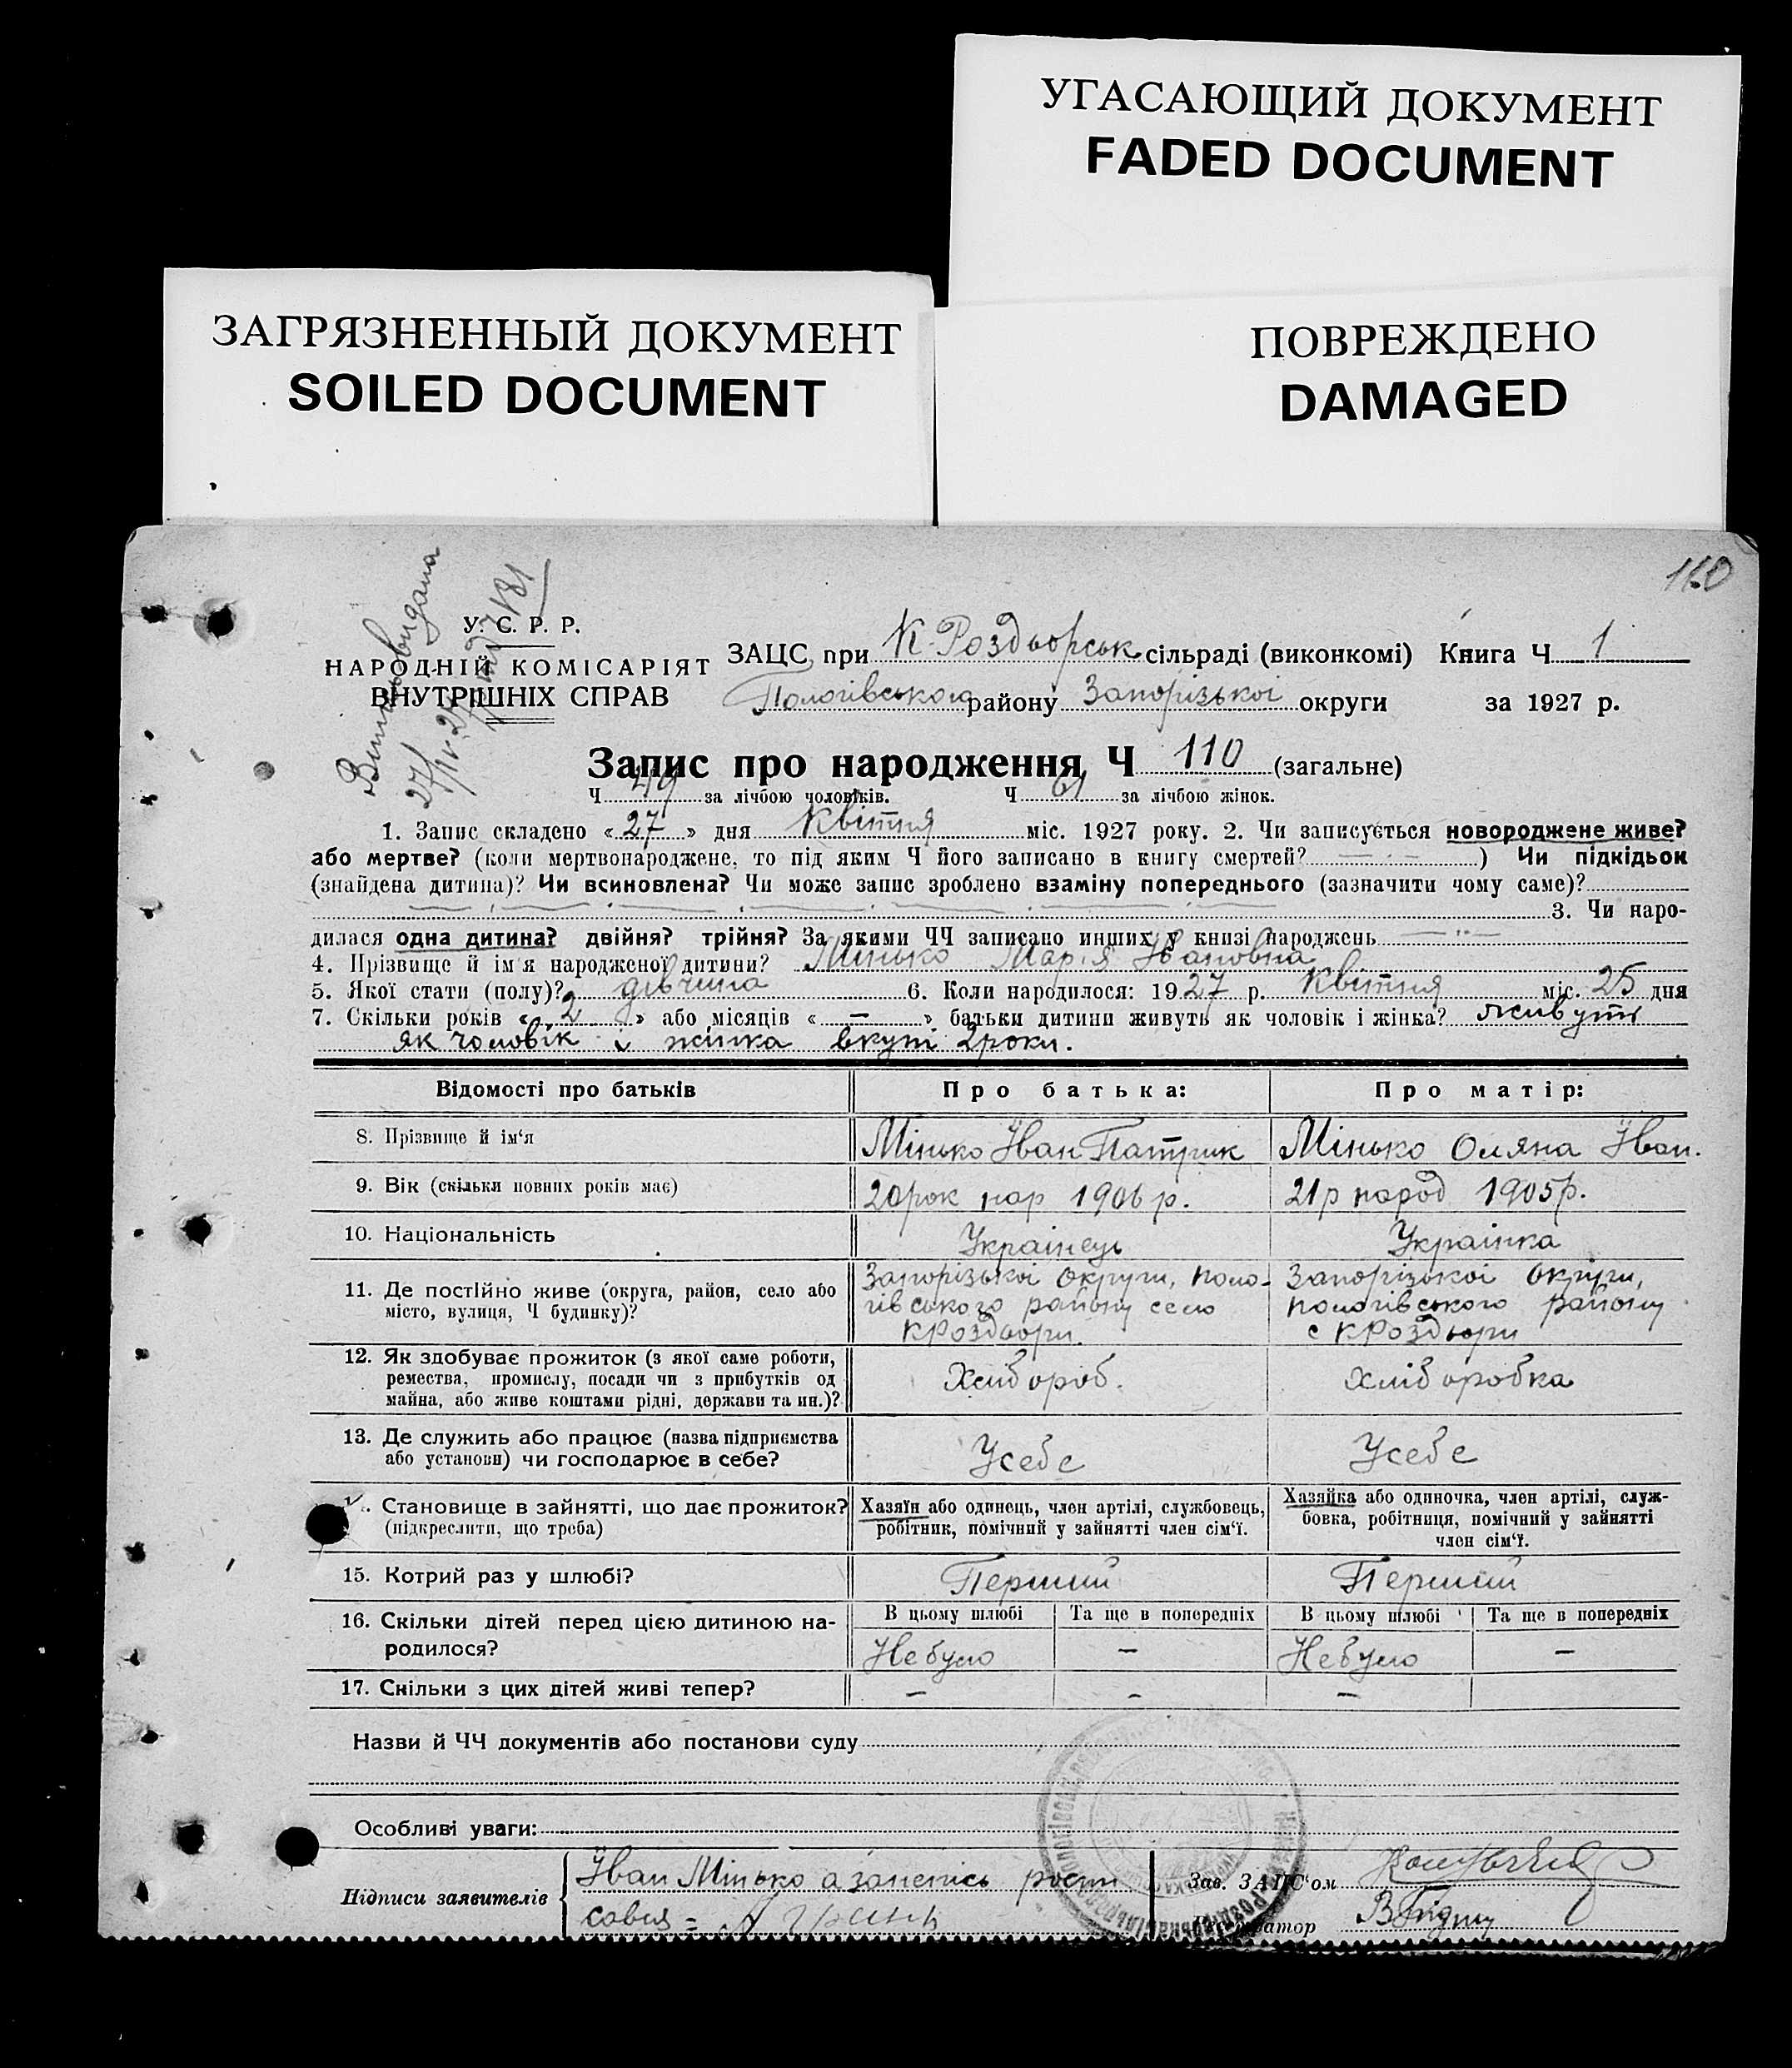 УГАСАЮЩИЙ ДОКУМЕНТ
FADED DOCUMENT
ЗАГРЯЗНЕННЫЙ ДОКУМЕНТ
SOILED DOCUMENT
ПОВРЕЖДЕНО
DAMAGED
110
У. С. Р. Р.
НАРОДНІЙ КОМІСАРІЯТ
ВНУТРІШНІХ СПРАВ
ЗАЦС при К-Роздорськ сільраді (виконкомі) Книга Ч 1
Пологівського району Запорізькоі округи за 1927 р.
Запис про народження Ч 110 (загальне)
Ч 49 за лічбою чоловіків. Ч 61 за лічбою жінок.
1. Запис складено « 27 » дня Квітня міс. 1927 року. 2. Чи записується новороджене живе?
або мертве? (коли мертвонароджене, то під яким Ч його записано в книгу смертей? — · — ) Чи підкідьок
(знайдена дитина)? Чи всиновлена? Чи може запис зроблено взаміну попереднього (зазначити чому саме)?
3. Чи наро-
дилася одна дитина? двійня? трійня? За якими ЧЧ записано инших у книзі народжень
4. Прізвище й ім'я народженої дитини? Мінько Марія Івановна
5. Якої стати (полу)? дівчина 6. Коли народилося: 1927 р. Квітня міс. 25 дня
7. Скільки років « 2 » або місяців « — » батьки дитини живуть як чоловік і жінка? живуть
як чоловік і жінка вкупі 2 роки.
Відомості про батьків Про батька: Про матір:
8. Прізвище й ім'я Мінько Іван Патрик Мінько Оляна Іван.
9. Вік (скільки повних років має) 20 рок нар 1906 р. 21 р народ 1905 р.
10. Національність Українець Українка
11. Де постійно живе (округа, район, село або місто, вулиця, Ч будинку)?
Запорізькоі Округи, Поло-
гівського району село
КРоздори.
Запорізькоі Округи,
Пологівського району
с КРоздори
12. Як здобуває прожиток (з якої саме роботи,
ремества, промислу, посади чи з прибутків од
майна, або живе коштами рідні, держави та ин.)?
Хлібороб. Хліборобка
13. Де служить або працює (назва підприємства
або установи) чи господарює в себе?
Усебе Усебе
14. Становище в зайнятті, що дає прожиток?
(підкреслити, що треба)
Хазяїн або одинець, член артілі, службовець,
робітник, помічний у зайнятті член сім'ї.
Хазяйка або одиночка, член артілі, служ-
бовка, робітниця, помічний у зайнятті
член сім'ї.
15. Котрий раз у шлюбі? Перший Перший
16. Скільки дітей перед цією дитиною на-
родилося?
В цьому шлюбі Та ще в попередніх В цьому шлюбі Та ще в попередніх
Небуло — Небуло —
17. Скільки з цих дітей живі тепер? — — —
Назви й ЧЧ документів або постанови суду
Особливі уваги:
Підписи заявителів Іван Мінько
Зав. ЗАЦС'ом